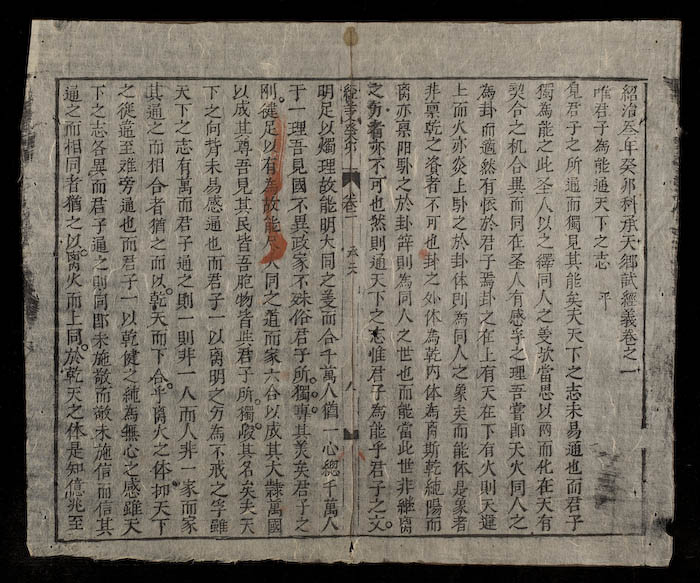 紹治叄年癸卯科承天鄉試經義卷之一
唯君子為能通天下之志　平
君子之所通而獨見其能矣夫天下之志未易通也而君子
獨為能之此圣人以之繹同人之義欤當思以兩而化在天有
契合之机合異而同在圣人有感孚之理吾嘗即天火同人之
為卦而適然有於君子焉卦之在上有天在下有火則天運
上而火亦炎上卦之於卦体則為同人之象矣而能体是象者
非禀乾之資者不可也卦之外体為乾内体為离斯乾純陽而
离亦禀阳卦之於卦辞則為同人之世也而能當此世非継离
之者亦不可也然則通天下之志惟君子為能乎君子之文
經義癸卯　卷一　承天　八
明足以燭理故能明大同之義而合千萬人猶一心總千萬人
于一理吾見國不異政家不殊俗君子所獨專其美矣君子之
剛健足以有為故能尽大同之道而家六合以成其大隸萬國
以成其尊吾見其民皆吾胞物皆吾與君子所獨其名矣夫天
下之向背未易感通也而君子一以离明之為不戒之孚雖
天下之志有萬而君子通之則一則非一人而人非一家而家
其通之而相合者猶之而以乾天而下合乎离火之体抑天下
之從違至难旁通也而君子一以乾健之純為無心之感雖天
下之志各異而君子通之則同即未施敬而敬未施信而信其
通之而相同者猶之以离火而上同於乾天之体是知億兆至